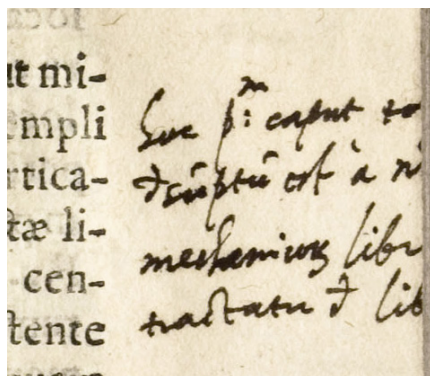 ut mi-
empli
rtica-
tæ li-
cen-
tente
hoc p:m caput to
est à
mechanicis libr
tractatu lib